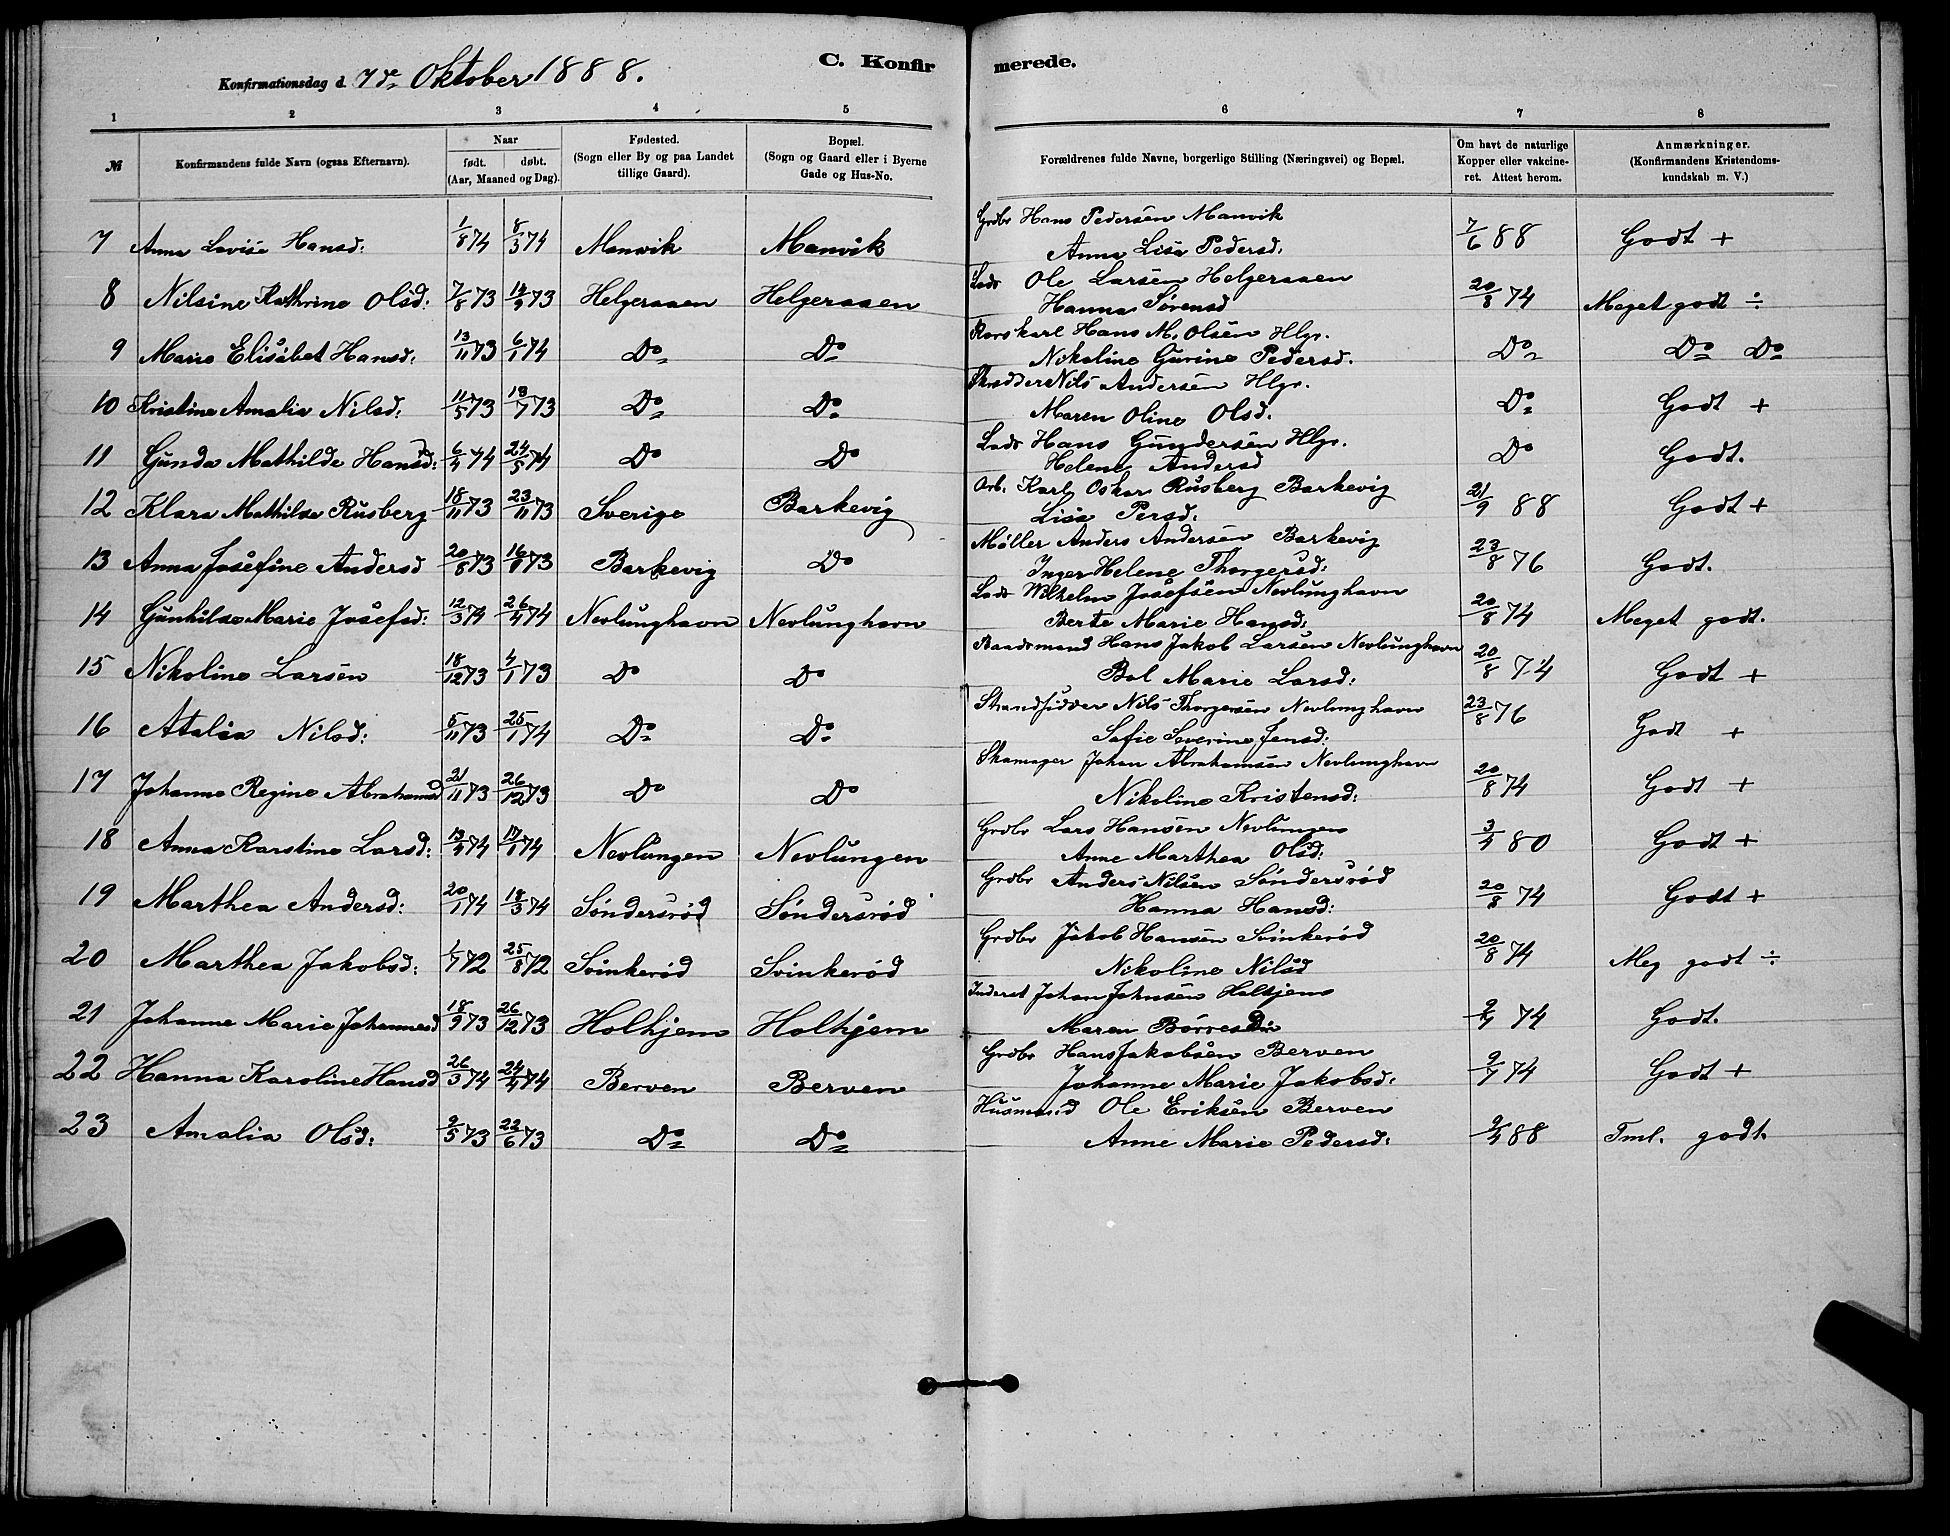 C. Konfirmerede.
Konfirmationsdag d. 7de Oktober 1888.
1 2 3 4 5 6 7 8
№ Konfirmandens fulde Navn (ogsaa Efternavn). Naar født. døbt. (Aar, Maaned og Dag). Fødested. (Sogn eller By og paa Landet tillige Gaard). Bopæl. (Sogn og Gaard eller i Byerne Gade og Hus-No. Forældrenes fulde Navne, borgerlige Stilling (Næringsvei) og Bopæl. Om havt de naturlige Kopper eller vakcineret. Attest herom. Anmærkninger. (Konfirmandens Kristendomskundskab m. V.)
7 Anna Lovise Hansd: 1/8 74 8/3 74 Manvik Manvik Grdbr Hans Pedersen Manvik 7/6 88 Godt +
Anna Lisa Pedersd:
8 Nilsine Kathrine Olsd: 7/8 73 14/9 73 Helgeraaen Helgeraaen Lods Ole Larsen Helgeraaen 20/8 74 Meget godt ÷
Hanna Sørensd
9 Marie Elisabet Hansd: 13/11 73 6/1 74 Do Do Rorskarl Hans M. Olsen Hlgr. Do Do Do
Nikoline Gurine Pedersd.
10 Kristine Amalia Nilsd: 11/5 73 13/7 73 Do Do Skrædder Nils Andersen Hlgr. Do Godt +
Maren Oline Olsd.
11 Gunda Mathilde Hansd: 6/4 74 24/5 74 Do Do Lods Hans Gundersen Hlgr. Do Godt.
Helene Andersd
12 Klara Mathilde Rusberg 18/11 73 23/11 73 Sverige Barkevig Arb. Karl Oskar Rusberg Barkevig 21/9 88 Godt +
Lisa Persd:
13 Anna Josefine Andersd 20/8 73 16/8 73 Barkevig Do Møller Anders Andersen Barkevig 23/8 76 Godt.
Inger Helene Thorgersd:
14 Gunhilde Marie Josefsd: 12/3 74 26/4 74 Nevlunghavn Nevlunghavn Lods Wilhelm Josefsen Nevlunghavn 20/8 74 Meget godt.
Berte Marie Hansd:
15 Nikoline Larsen 18/12 73 4/1 73 Do Do Baadsmand Hans Jakob Larsen Nevlunghavn 20/8 74 Godt +
Bol Marie Larsd:
16 Atalia Nilsd: 5/11 73 25/1 74 Do Do Strandsidder Nils Thorgersen Nevlunghavn 23/8 76 Godt +
Sofie Severine Jensd:
17 Johanne Regine Abrahamsd 21/11 73 26/12 73 Do Do Skomager Johan Abrahamsen Nevlunghavn 20/8 74 Godt +
Nikoline Kristensd:
18 Anna Karstine Larsd: 74 74 Nevlungen Nevlungen Grdbr Lars Hansen Nevlungen 3/4 80 Godt +
Anne Marthea Olsd:
19 Marthea Andersd: 20/1 74 18/3 74 Søndersrød Søndersrød Grdbr Anders Nilsen Søndersrød 20/8 74 Godt +
Hanna Hansd:
20 Marthea Jakobsd: 1/7 72 25/8 72 Svinkerød Svinkerød Grdbr Jakob Hansen Svinkerød 20/8 74 Meg godt ÷
Nikoline Nilsd
21 Johanne Marie Johannesd 18/9 73 26/12 73 Holhjem Holhjem Inderst Johan Johnsen Holhjem 74 Godt.
Maren Børresd:
22 Hanna Karoline Hansd 26/3 74 24/4 74 Berven Berven Grdbr Hans Jakobsen Berven 9/7 74 Godt +
Johanne Marie Jakobsd:
23 Amalia Olsd: 9/5 73 22/6 73 Do Do Husmand Ole Eriksen Berven 9/4 88 Tml. godt.
Anne Marie Pedersd: